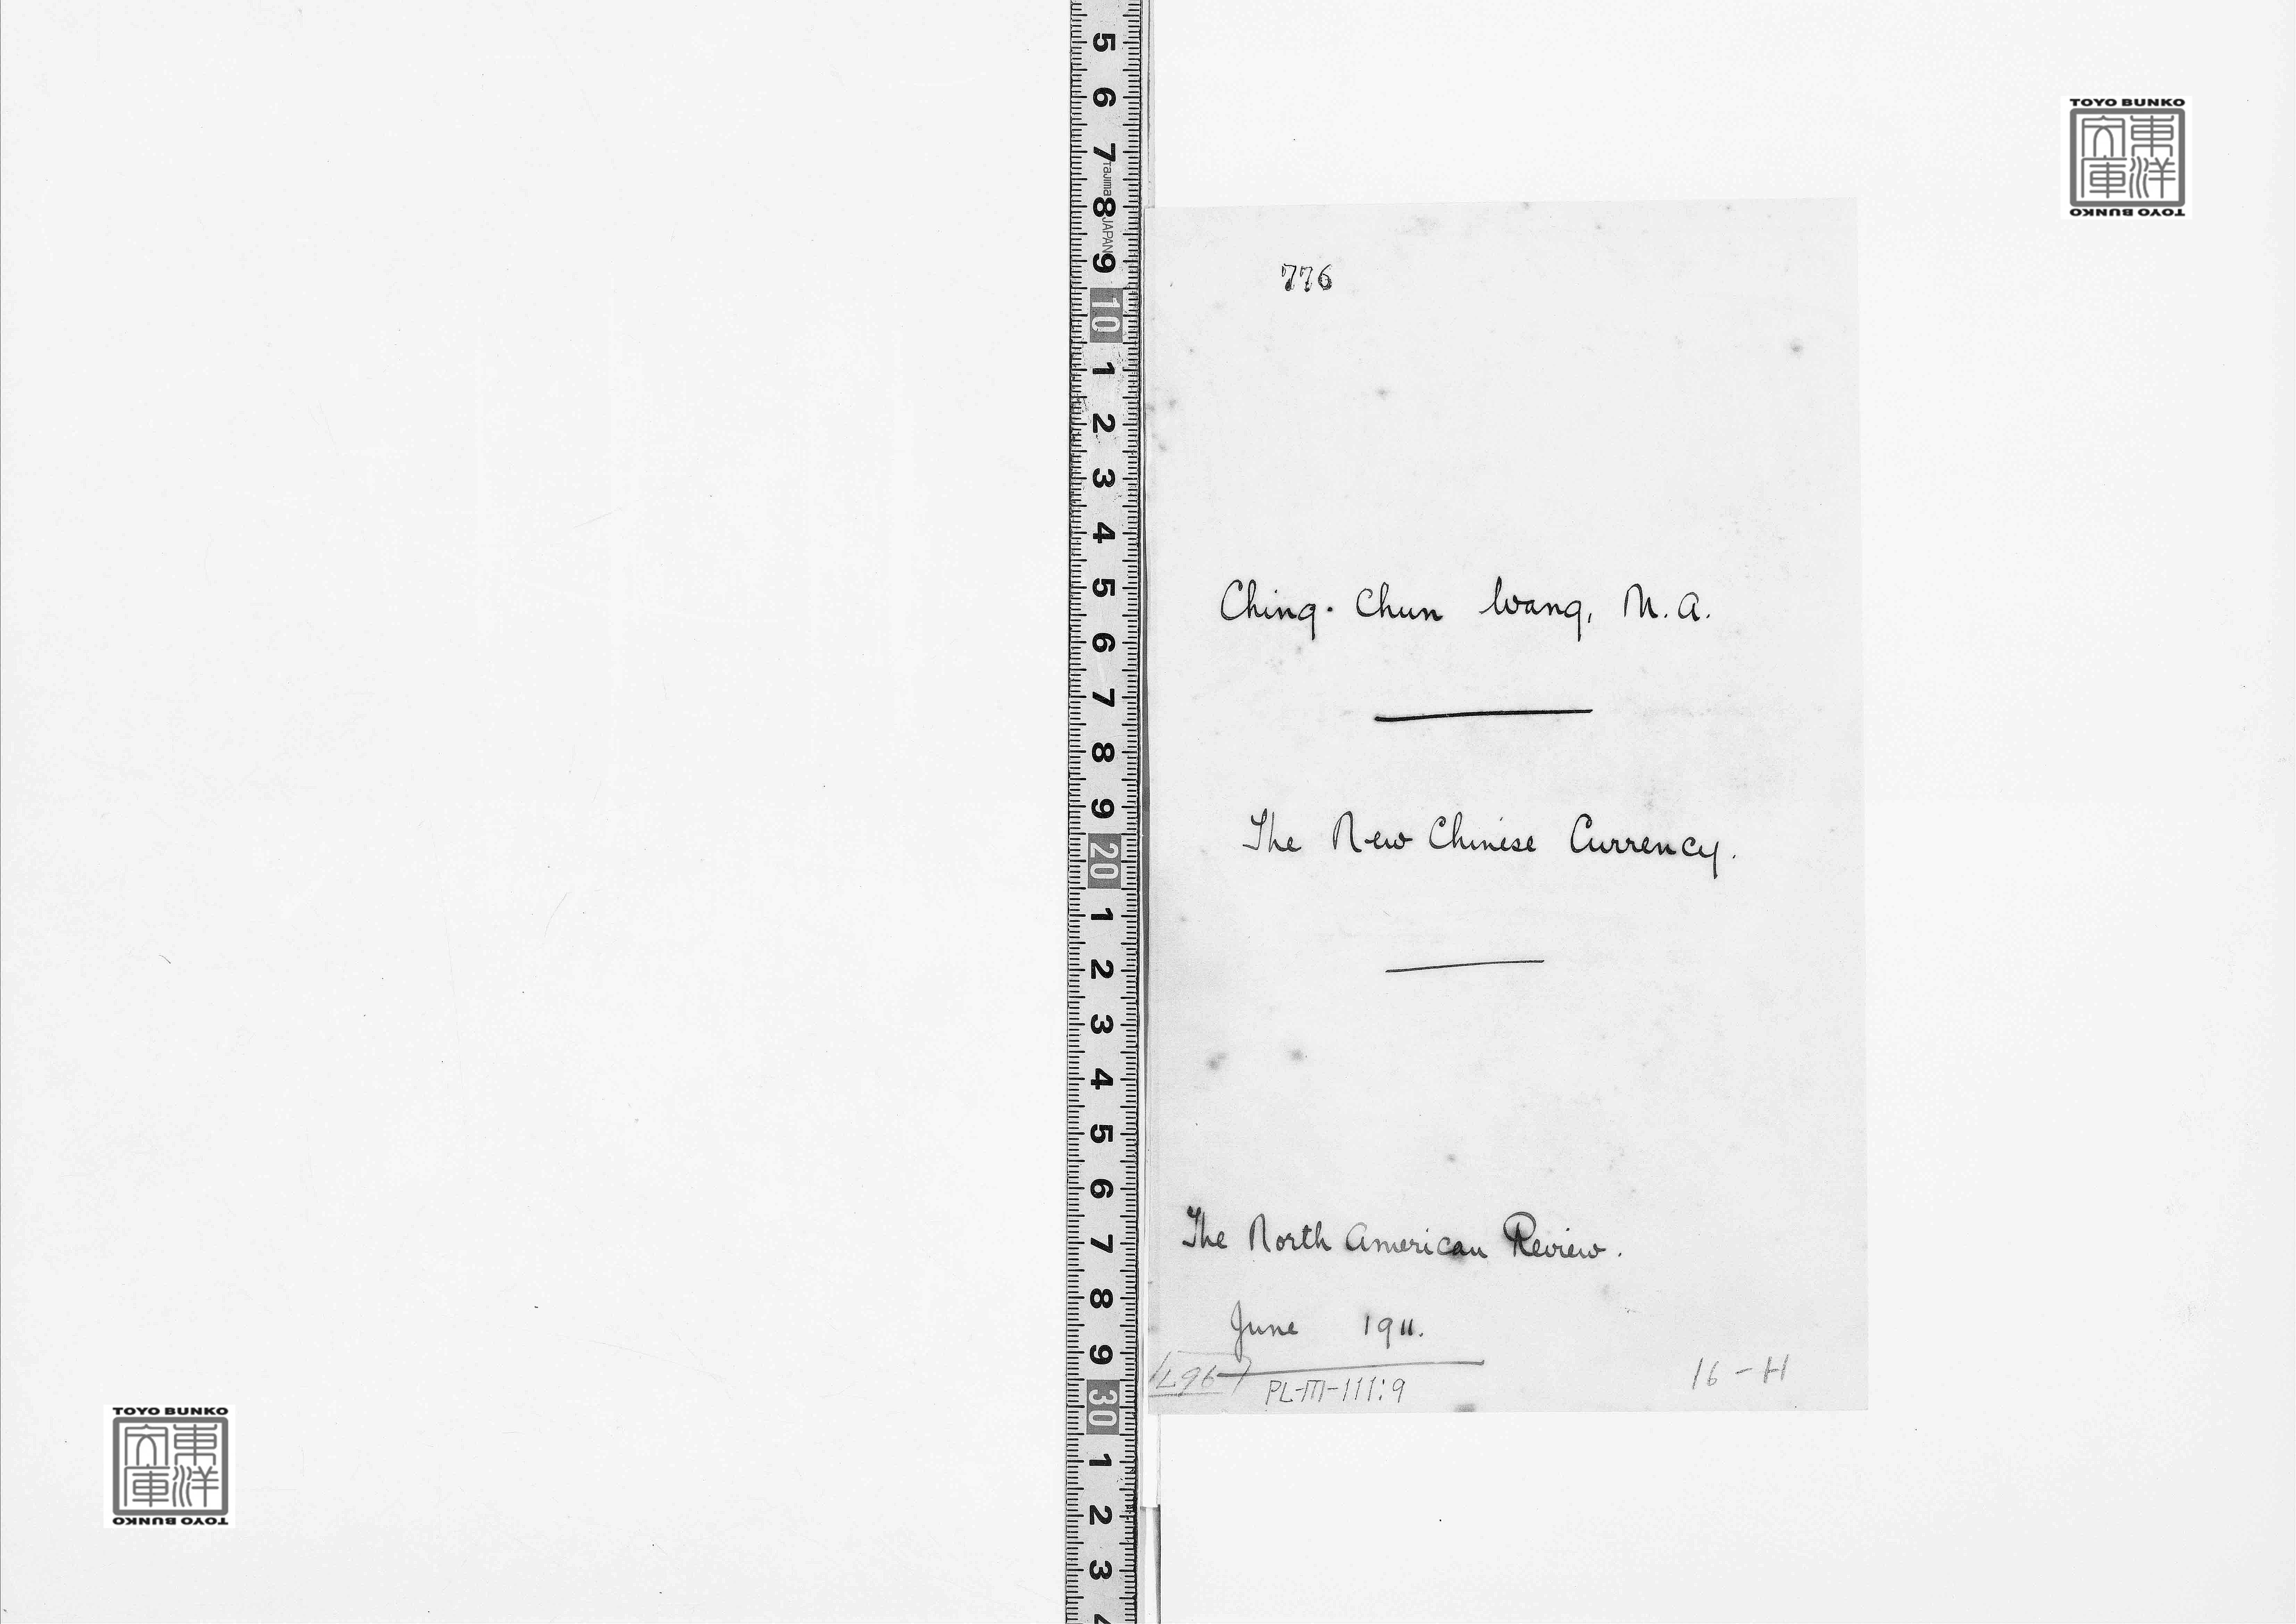 TOYO BUNKO
東洋文庫
TOYO BUNKO
776
Ching-Chun Wang, M.A.
The New Chinese Currency.
The North American Review.
June 1911.
PL-M-111:9
16-H
5
6
7
Tajima
8
JAPAN
9
10
1
2
3
4
5
6
7
8
9
20
1
2
3
4
5
6
7
8
9
30
1
2
3
4
TOYO BUNKO
東洋文庫
TOYO BUNKO